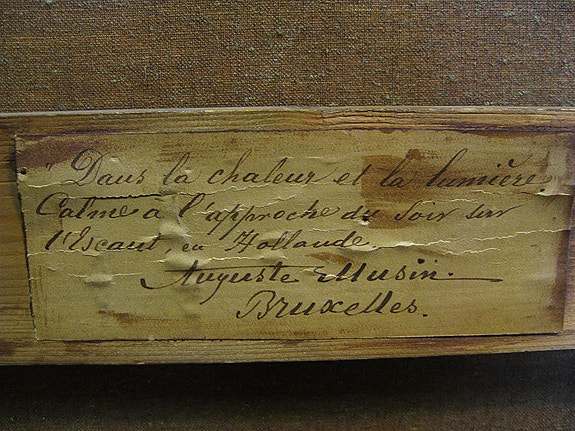 " Dans la chaleur et la lumière.
Calme à l'approche du Soir sur
l'Escaut, en Hollande.
Auguste Musin.
Bruxelles.